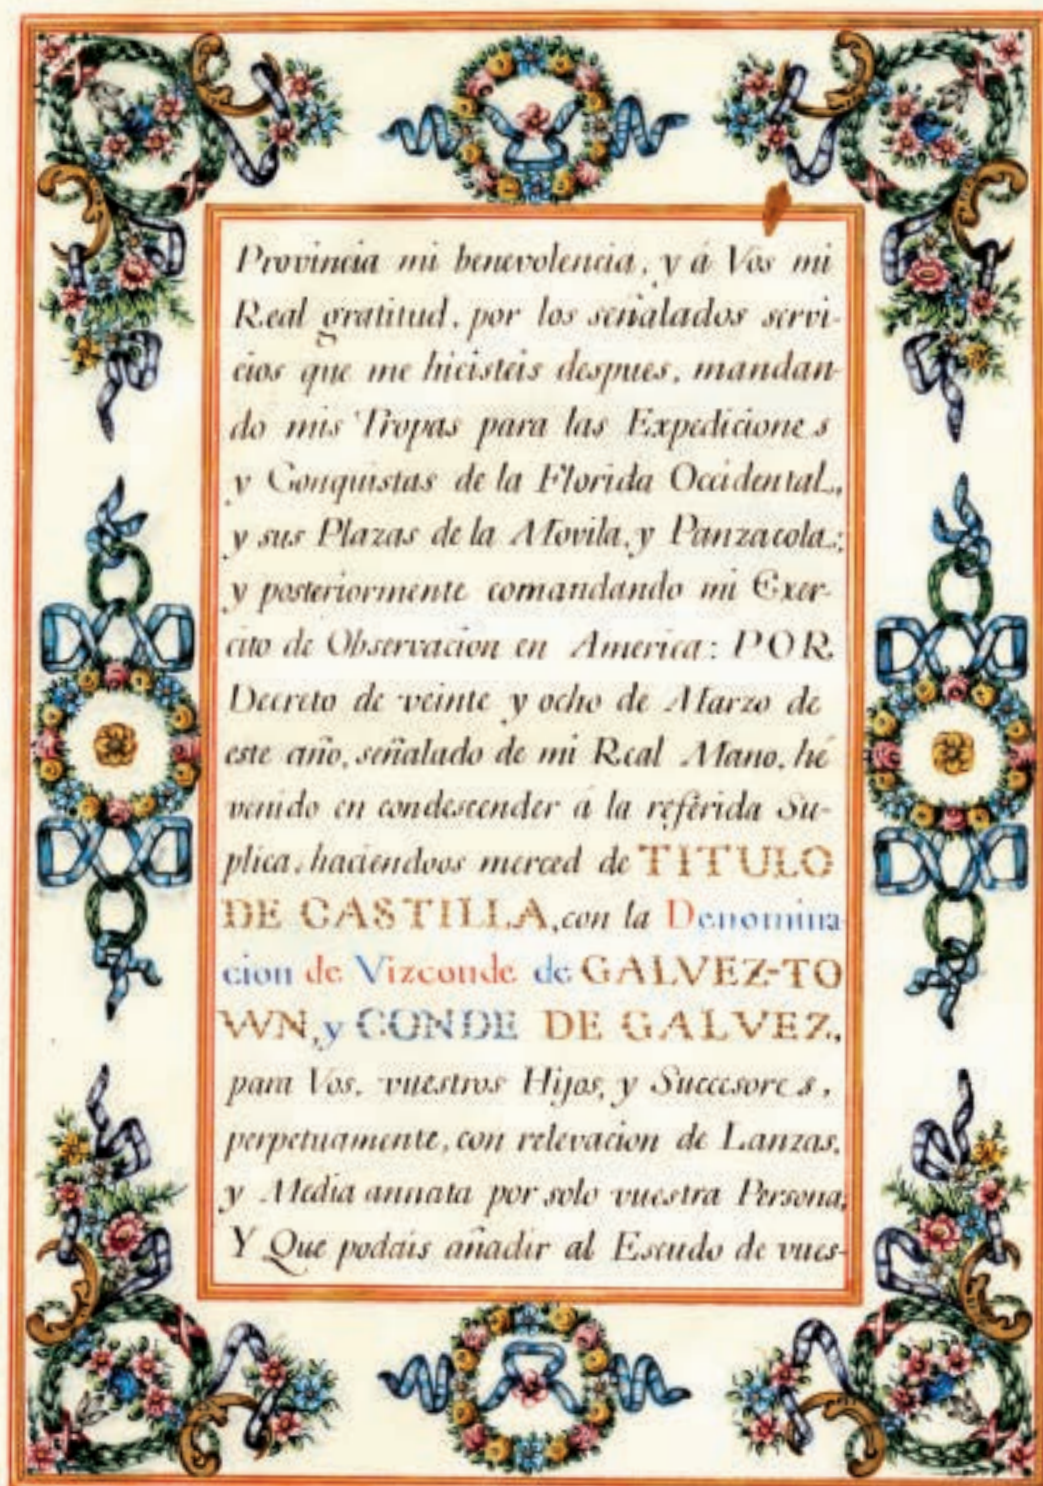 Provincia mi benevolencia, y á Vos mi
Real gratitud, por los señalados servi-
cios que me hicisteis despues, mandan-
do mis Tropas para las Expediciones
y Conquistas de la Florida Occidental,
y sus Plazas de la Movila, y Panzacola;
y posteriormente comandando mi Exer-
cito de Observacion en America: POR
Decreto de veinte y ocho de Marzo de
este año, señalado de mi Real Mano, hé
venido en condescender á la referida Su-
plica, haciendoos merced de TITULO
DE CASTILLA, con la Denomina
cion de Vizconde de GALVEZ-TO
WN, y CONDE DE GALVEZ,
para Vos, vuestros Hijos, y Succesores,
perpetuamente, con relevacion de Lanzas,
y Media annata por solo vuestra Persona,
Y Que podais añadir al Escudo de vues-